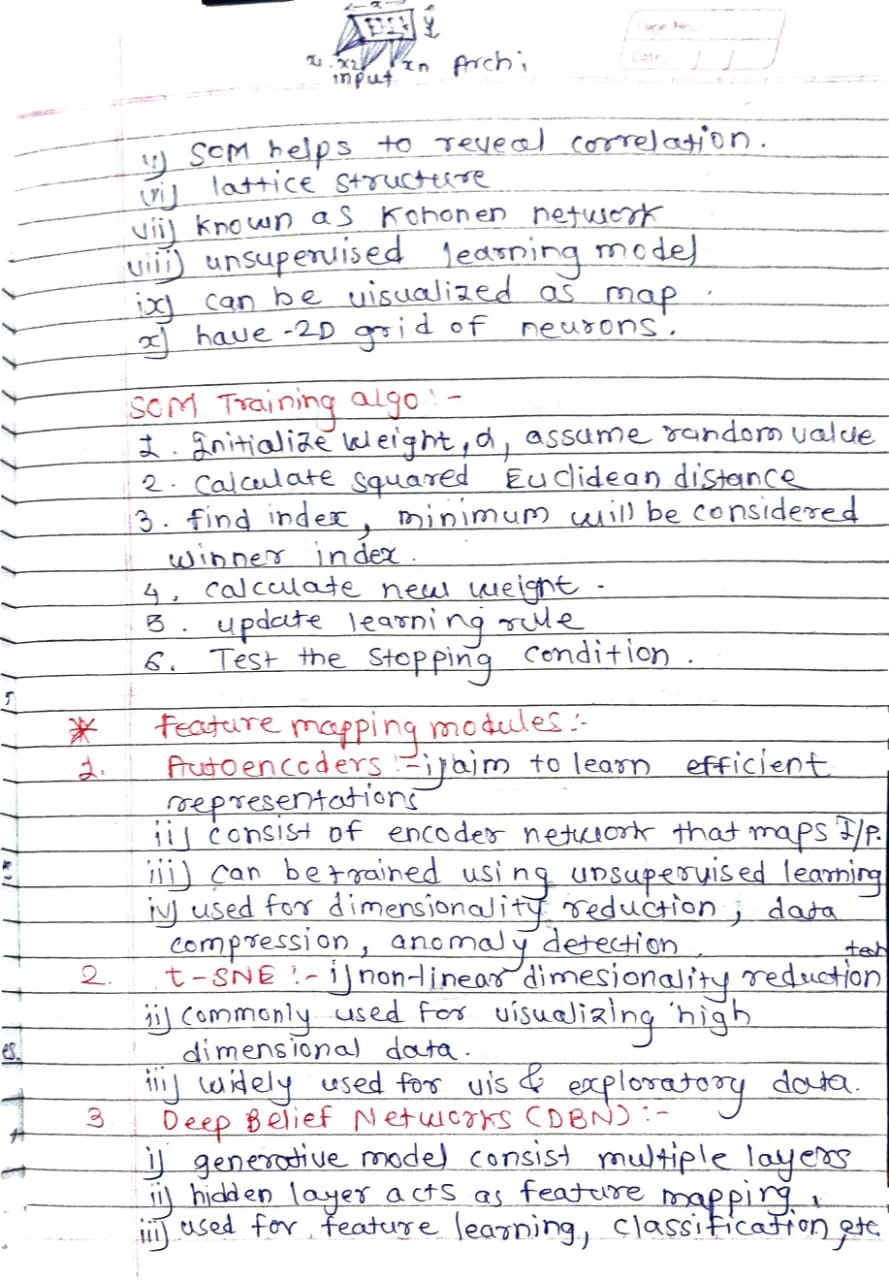 x
y
x1 x2 xn Archi
input
Page No.
Date
v) SOM helps to reveal correlation.
vi) lattice structure
vii) known as Kohonen network
viii) unsupervised learning model
ix) can be visualized as map.
x) have -2D grid of neurons.
SOM Training algo :-
1. Initialize weight, α, assume random value
2. Calculate squared Euclidean distance
3. find index, minimum will be considered
winner index.
4. calculate new weight.
5. update learning rule
6. Test the stopping condition.
* Feature mapping modules :-
1. Autoencoders :- i) aim to learn efficient
representations
ii) consist of encoder network that maps I/P.
iii) can be trained using unsupervised learning
iv) used for dimensionality reduction, data
compression, anomaly detection.
teh
2. t-SNE :- i) non-linear dimesionality reduction
ii) commonly used for visualizing high
dimensional data.
es.
iii) widely used for vis & exploratory data.
3 Deep Belief Networks (DBN) :-
i) generative model consist multiple layers
ii) hidden layer acts as feature mapping,
iii) used for feature learning, classification, etc.